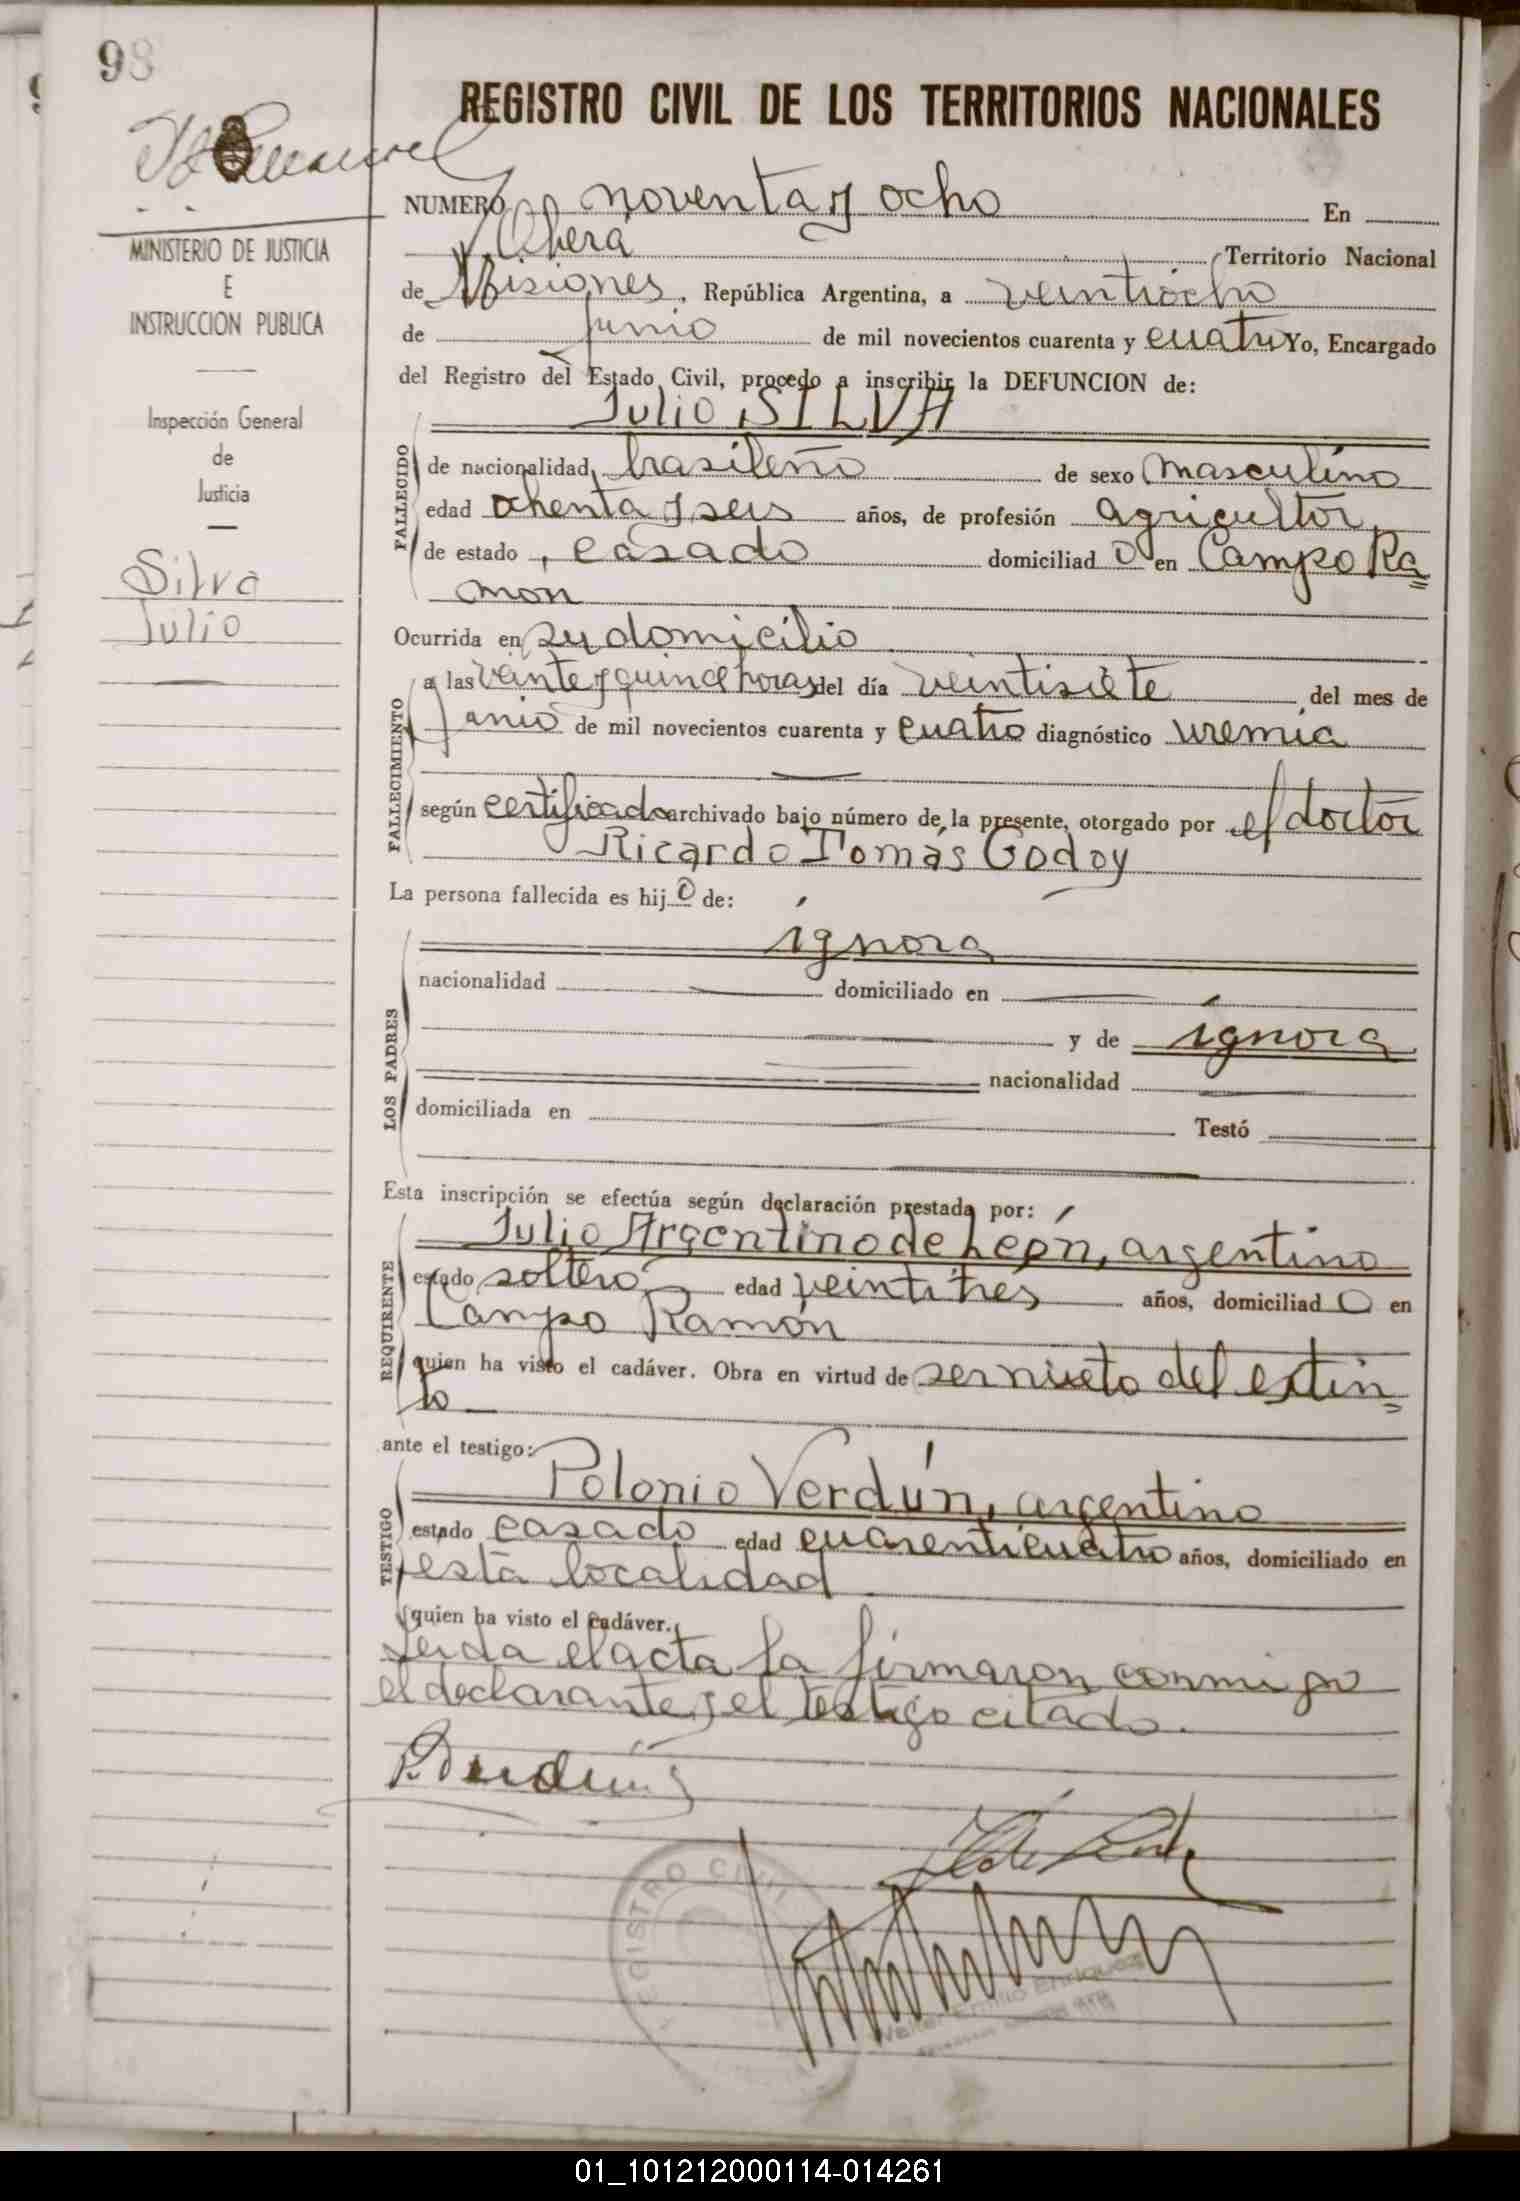 98
REGISTRO CIVIL DE LOS TERRITORIOS NACIONALES
MINISTERIO DE JUSTICIA
E
INSTRUCCION PUBLICA
Inspección General
de
Justicia
Silva
Julio
NUMERO noventa y ocho En
Obera Territorio Nacional
de Misiones, República Argentina, a veintiocho
de junio de mil novecientos cuarenta y cuatro Yo, Encargado
del Registro del Estado Civil, procedo a inscribir la DEFUNCION de:
Julio SILVA
FALLECIDO
de nacionalidad brasileño de sexo masculino
edad ochenta y seis años, de profesión agricultor
de estado casado domiciliado en Campo Ra=
món
Ocurrida en su domicilio
FALLECIMIENTO
a las veinte y quince horas del día veintisiete del mes de
junio de mil novecientos cuarenta y cuatro diagnóstico uremia
según certificado archivado bajo número de la presente, otorgado por el doctor
Ricardo Tomás Godoy
La persona fallecida es hijo de:
LOS PADRES
ignora
nacionalidad domiciliado en
y de ignora
nacionalidad
domiciliada en Testó
Esta inscripción se efectúa según declaración prestada por:
REQUIRENTE
Julio Argentino de León, argentino
estado soltero edad veintitres años, domiciliado en
Campo Ramón
quien ha visto el cadáver. Obra en virtud de ser nieto del extin=
to
ante el testigo:
TESTIGO
Polonio Verdún, argentino
estado casado edad cuarenticuatro años, domiciliado en
esta localidad
quien ha visto el cadáver.
Leida el acta la firmaron conmigo
el declarante y el testigo citado.
REGISTRO CIVIL
Emilio Enriquez
01_101212000114-014261